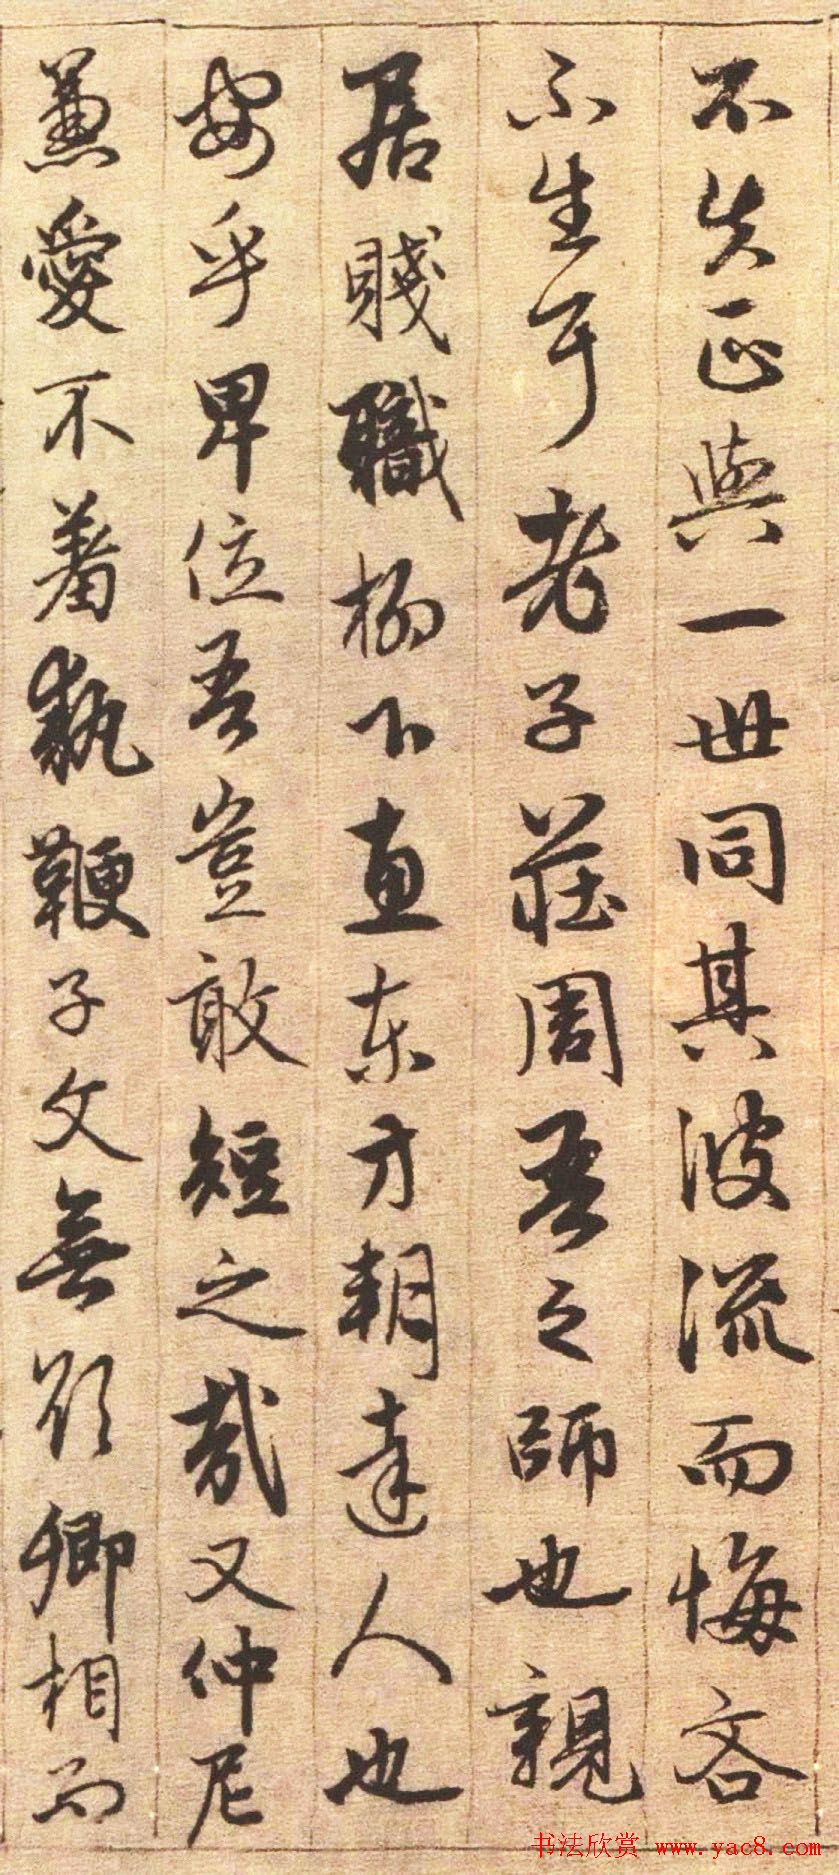 不失正與一世同其波流而悔吝
不生耳老子莊周吾之師也親
居賤職柳下惠東方朝達人也
安乎卑位吾豈敢短之哉又仲尼
兼愛不著執鞭子文無欲卿相而
书法欣赏 www.yac8.com